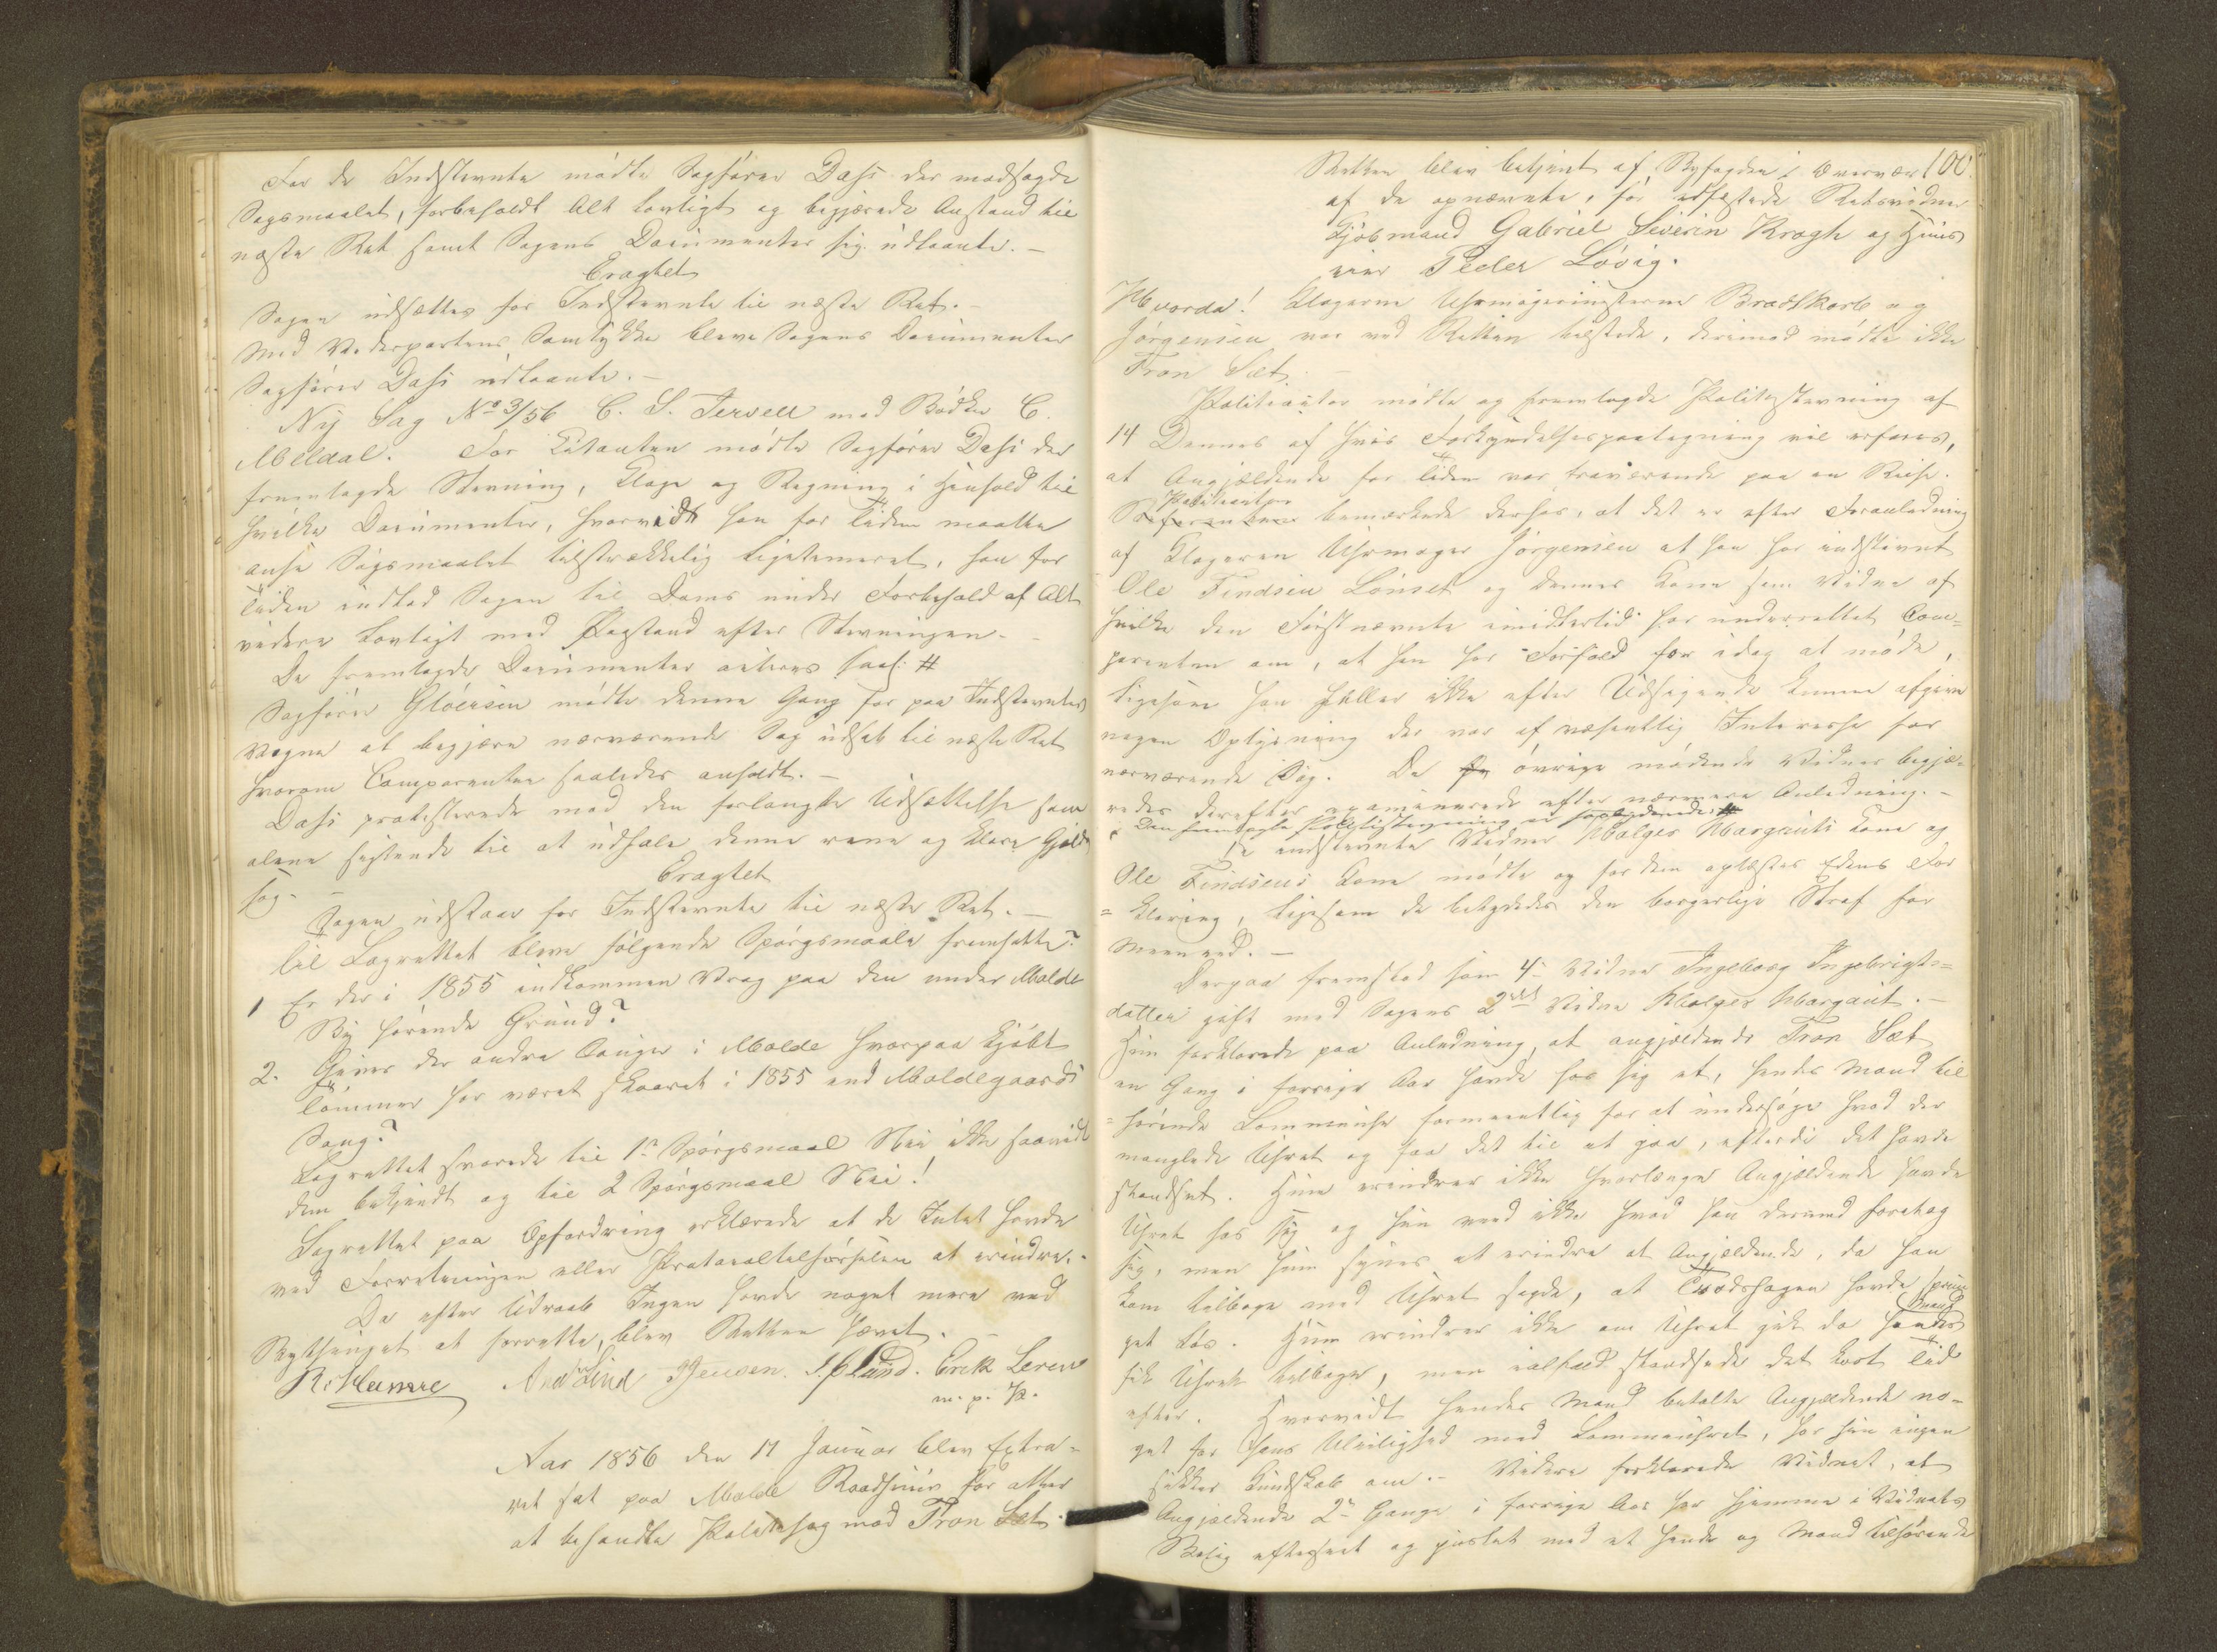 For de Indstevnte mødte Sagfører Dahl der modsagde
Sagsmaalet, forbeholdt Alt lovligt og begjærede Anstand til
næste Ret samt Sagens Documenter sig udlaante. —
Eragtet
Sagen udsættes for Indstevnte til næste Ret. —
Med Vederpartens Samtykke bleve Sagens Documenter
Sagfører Dahl udlaante. —
Ny Sag No 3/56 C. S. Tervell mod Bødker C.
Meldal. For Citanten mødte Sagfører Dahl der
fremlagde Stevning, Klage og Regning i Henhold til
hvilke Documenter, hvorved han for Tiden maatte
anse Søgsmaalet tilstrækkelig legitimeret, han for
Tiden indlod Sagen til Doms under Forbehold af Alt
videre Lovligt med Paastand efter Stevningen. —
De fremlagde Documenter acteres saal: #
Sagfører Gløersen mødte denne Gang for paa Indstevntes
Vegne at begjære nærværende Sag udsat til næste Ret
hvorom Comparenten saaledes anholdt. —
Dahl protesterede mod den forlangte Udsættelse som
alene sigtende til at udhale denne rene og klare Gjelds
sag. —
Eragtet
Sagen udstaar for Indstevnte til næste Ret. —
Til Lagrettet bleve følgende Spørgsmaale fremsatte?
1 Er der i 1855 indkommen Vrag paa den under Molde
By hørende Grund?
2. Gives der andre Sauger i Molde hvorpaa kjøbt
Tømmer har været skaaret i 1855 end Moldegaards
Saug?
Lagrettet svarede til 1ste Spørgsmaal Nei ikke saavidt
dem bekjendt og til 2 Spørgsmaal Nei!
Lagrettet paa Opfordring erklærede at de Intet havde
ved Forretningen eller Protocoltilførselen at erindre. —
Da efter Udraab Ingen havde noget mere ved
Bythinget at forrette, blev Retten hævet. —
And Lind Jensen. Erik Leren
m. p. P.
Aar 1856 den 17 Januar blev Extra-
ret sat paa Molde Raadhuus for atter
at behandle Politisag mod Tron Sæt.
100.
Retten blev betjent af Byfogden i Overvær
af de opnævnte, før edfæstede Retsvidner
Kjøbmand Gabriel Severin Krogh og Huus
eier Peder Løvig.
Hvorda! Klagerne Uhrmagersvendene Bradtkorb og
Jørgensen var ved Retten tilstede, derimod mødte ikke
Tron Sæt. —
Politiactor mødte og fremlagde Politistevning af
14 Dennes af hvis Forkyndelsespaategning vil erfares,
at Angjældende for Tiden var fraværende paa en Reise.
Politiactor
bemærkede derhos, at det er efter Foranledning
af Klageren Uhrmager Jørgensen at han har indstevnt
Ole Findsen Lønset og dennes Kone som Vidne af
hvilke den Førstnævnte imidlertid har underrettet Com-
parenten om, at han har Forfald for idag at møde,
ligesom han heller ikke efter Udsigende kunne afgive
nogen Oplysning der var af væsentlig Interesse for
nærværende Sag. De øvrige mødende Vidner begjæ-
redes derefter examinerede efter nærmere Anledning. —
Den fremlagte Politistevning er saalydende: #
De indstevnte Vidner Holger Margauts Kone og
Ole Findsens Kone mødte og for dem oplæstes Edens For
= klaring, ligesom de betydedes den borgerlige Straf for
Meeneed. —
Derpaa fremstod som 4de Vidne Ingeborg Ingebrigts-
datter gift med Sagens 2det Vidne Holger Margaut. —
Hun forklarede paa Anledning, at angjældende Tron Sæt
en Gang i forrige Aar havde hos sig et, hendes Mand til
= hørende Lommeuhr formeentlig for at undersøge hvad der
manglede Uhret og faa det til at gaa, efterdi det havde
standset. Hun erindrer ikke hvorlænge Angjældende havde
Uhret hos sig og hun veed ikke hvad han derved foretog
sig, men hun synes at erindre at Angjældende, da han
kom tilbage med Uhret sagde, at havde sprun
get løs. Hun erindrer ikke om Uhret gik da hendes Mand
fik Uhret tilbage, men ialfald standsede det kort Tid
efter. Hvorvidt hendes Mand betalte Angjældende no-
get for hans Uleilighed med Lommeuhret, har hun ingen
sikker Kundskab om. — Videre forklarede Vidnet, at
Angjældende 2de Gange i forrige Aar har hjemme i Vidnets
Bolig efterseet og pudset med et hende og Mand tilhørende